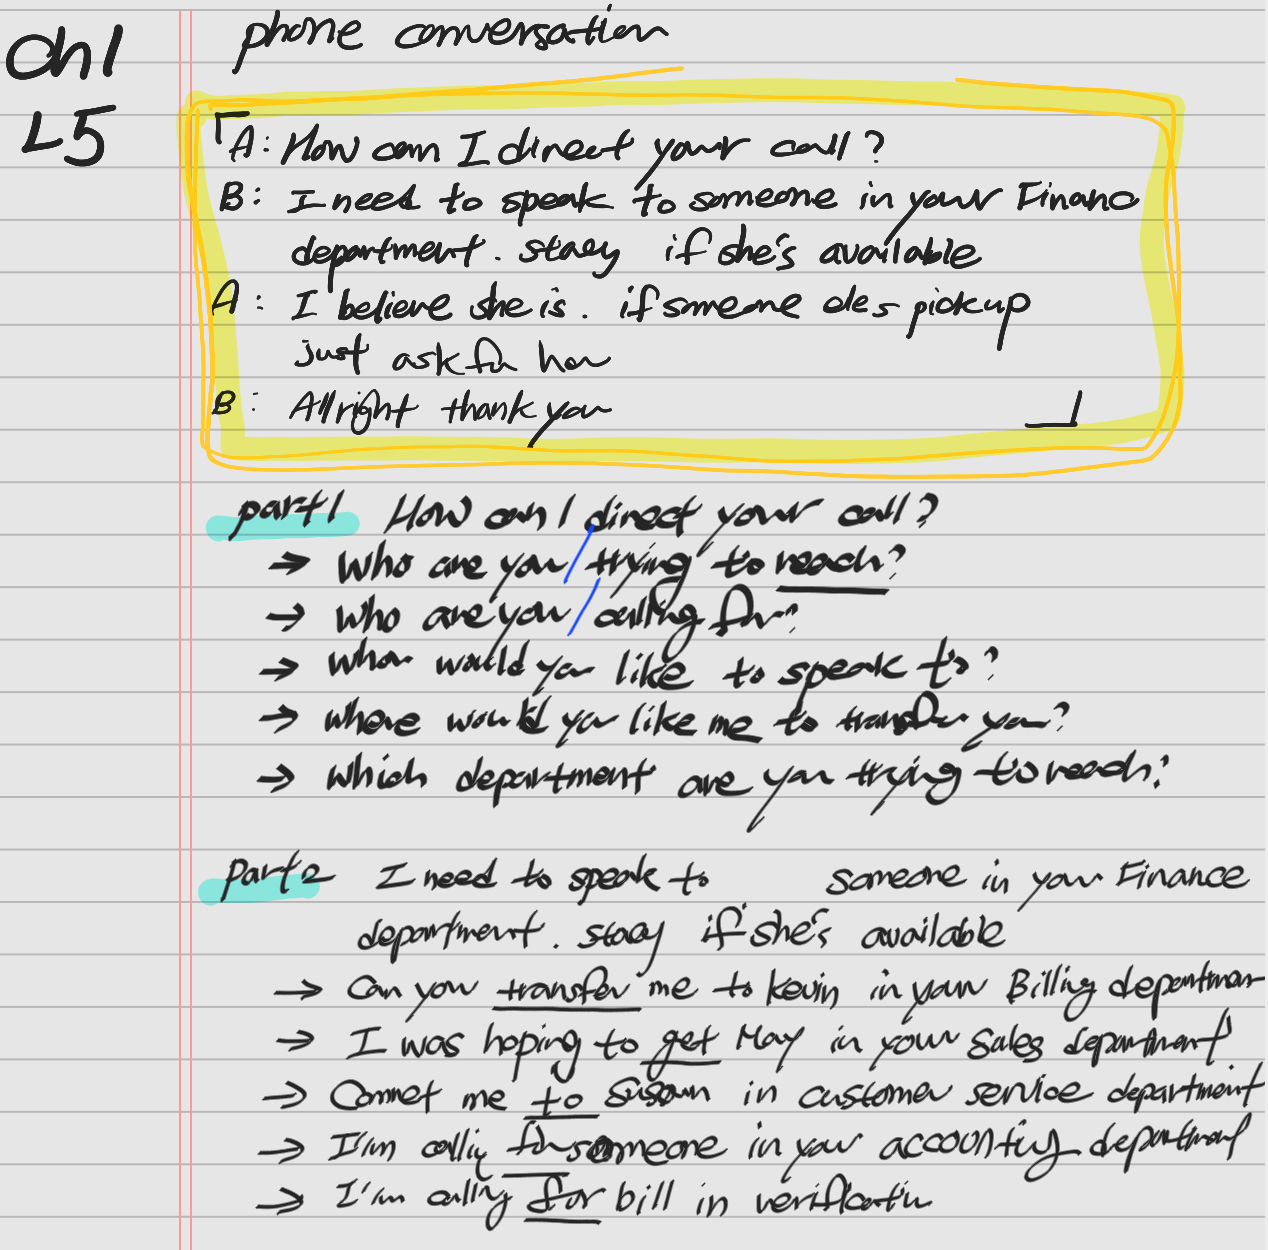 Ch1
L5
phone conversation
「A: How can I direct your call?
B: I need to speak to someone in your Financ
department. stacy if she's available
A: I believe she is. if someone eles pickup
just ask for her
B: Allright thank you 」
part1 How can I direct your call?
→ Who are you / trying to reach?
→ Who are you / calling for?
→ Whom would you like to speak to?
→ where would you like me to transfer you?
→ which department are you trying to reach?
part2 I need to speak to someone in your Finance
department. stacy if she's available
→ Can you transfer me to kevin in your Billing department
→ I was hoping to get May in your Sales department
→ Connet me to Susan in customer service department
→ I'm calling for someone in your accounting department
→ I'm calling for bill in verification